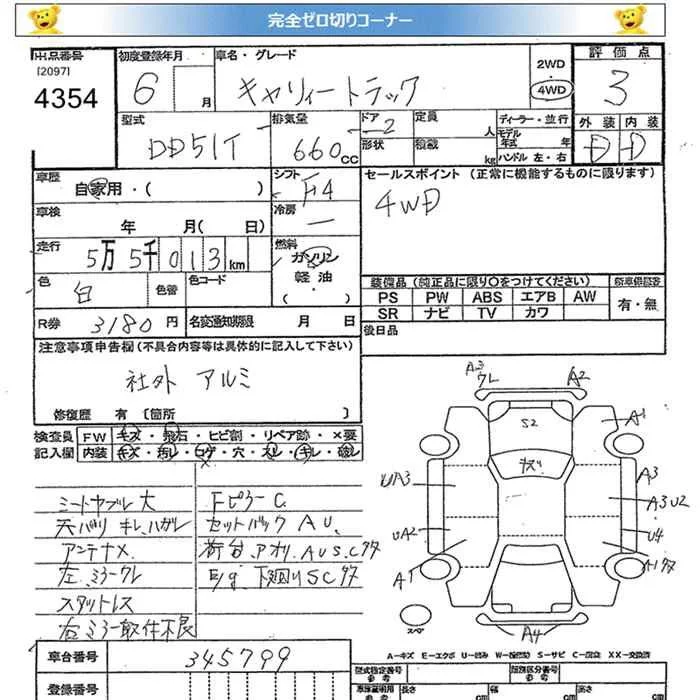 完全ゼロ切りコーナー
出品番号 初度登録年月 車名・グレード 2WD 評価点
[2097]
4354 6 月 キャリィートラック 4WD 3
型式 排気量 ドア 定員 ディーラー・並行 外装 内装
DD51T 660cc 2 人 モデル年式 年 D D
形状 積載 kg ハンドル 左・右
車歴 自家用・( ) シフト F4 セールスポイント (正常に機能するものに限ります)
車検 年 月( 日) 冷房 4WD
走行 5万5千013km 燃料 ガソリン
軽油
・( )
色 白 色替 色コード
装備品(純正品に限り○をつけてください) 新車保証書
PS PW ABS エアB AW 有・無
SR ナビ TV カワ
R券 3180円 名変通知期限 月 日
後日品
注意事項申告欄(不具合内容等は具体的に記入して下さい)
社外 アルミ
修復歴 有〔箇所 〕
検査員 FW キズ・飛石・ヒビ割・リペア跡・×要
記入欄 内装 キズ・汚レ・コゲ・穴・スレ・キレ・破レ
ミートヤブレ大 Fピラー C
天バリ キレ、ハガレ セットバック AU、
アンテナ× 荷台、アオリ、AUS、Cクサ
左ミラーワレ E/g 下廻りSCクサ
スタットレス
右ミラー取付不良
A3
ワレ A2
S2 A1
キズリ
UA3 A3
A3U2
UA2 U4
A1 A1クサ
スペア
A4
A-キズ E-エクボ U-凹み W-補修跡 S-サビ C-腐食 XX-交換済
車台番号 345799
型式指定番号 類別区分番号
参考 参考
登録番号
車庫証明用 長さ 幅 高さ
参考 cm cm cm